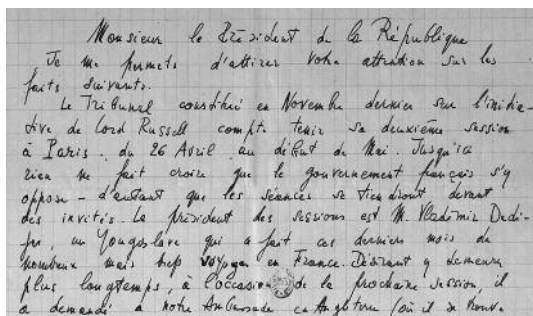 Monsieur le Président de la République
Je me permets d'attirer votre attention sur les
faits suivants.
Le Tribunal constitué en Novembre dernier sur l'initia-
tive de Lord Russell compte tenir sa deuxième session
à Paris, du 26 Avril au début de Mai. Jusqu'ici
rien ne fait croire que le gouvernement français s'y
oppose - d'autant que les séances se tiendront devant
des invités. Le président des sessions est M. Vladimir Dedi-
jer, un Yougoslave qui a fait ces derniers mois de
nombreux mais brefs voyages en France. Désirant y demeurer
plus longtemps, à l'occasion de la prochaine session, il
a demandé à notre Ambassade en Angleterre (où il se trouve